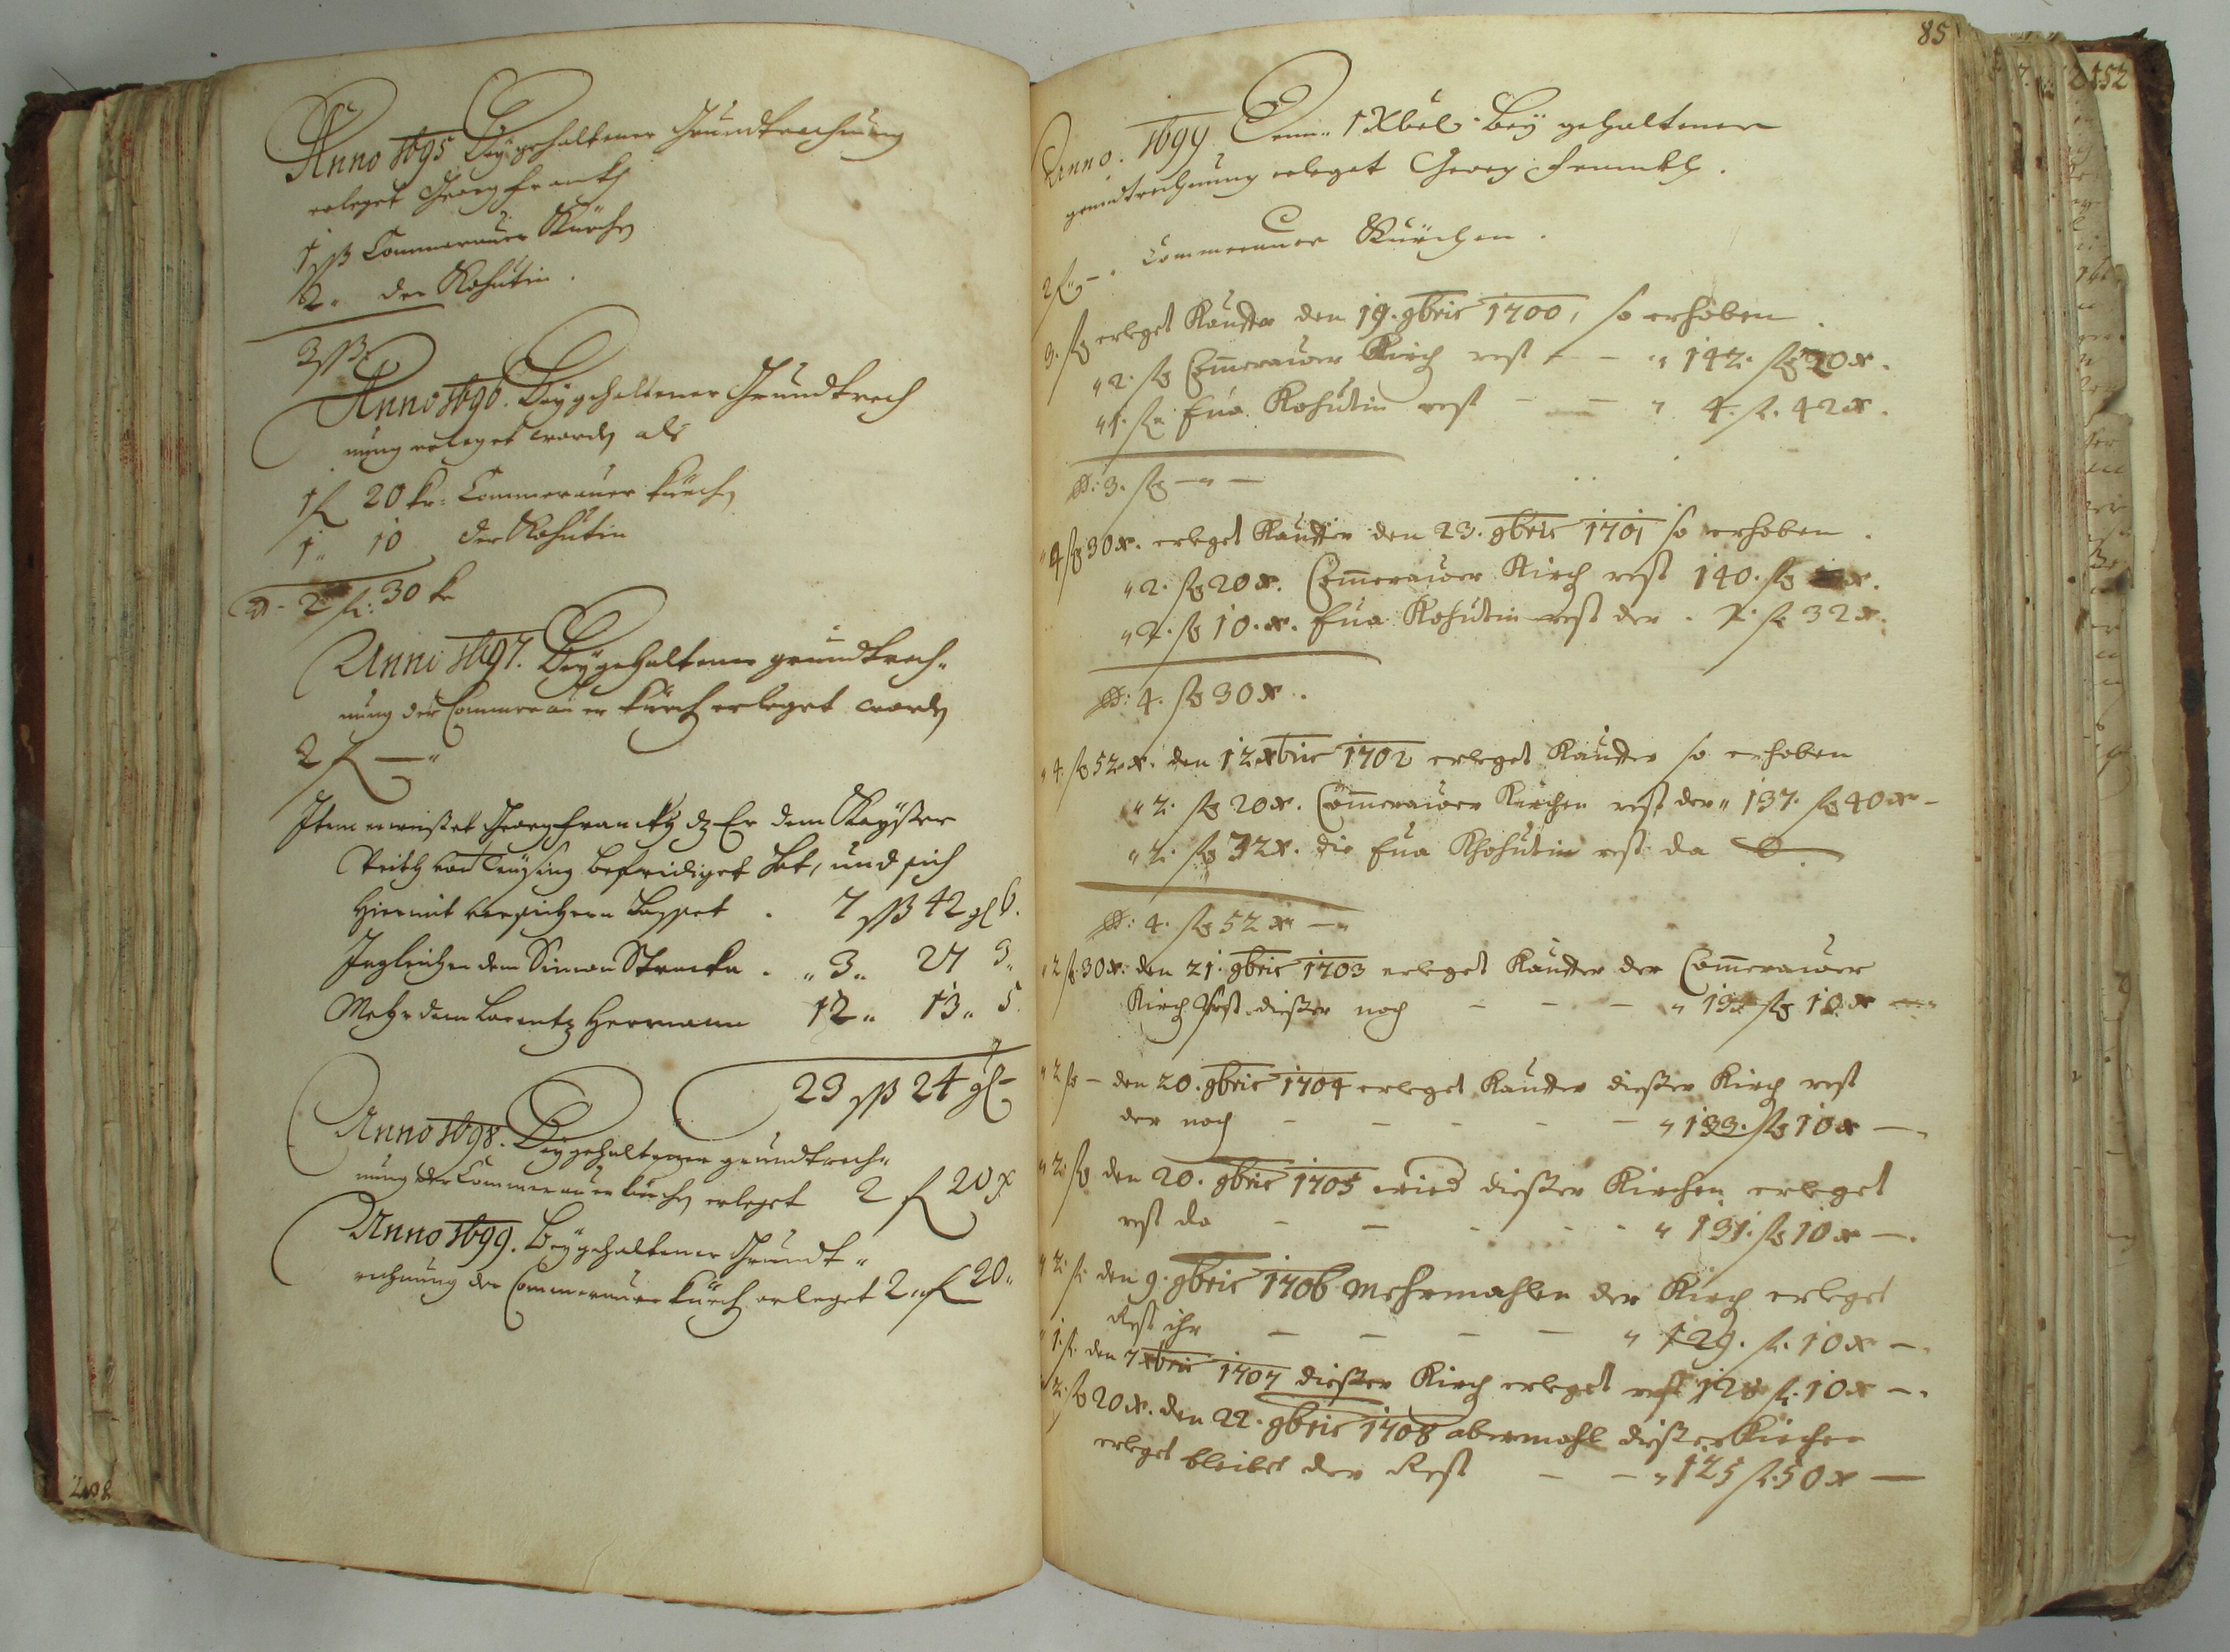 Anno 1695 Bey gehaltener Grundtrechnung
erleget Georg Franckh
1 ßß Commerauer Kürchen
2 " der Kohutin.
3 ßß
Anno 1696. Bey gehaltener Grundtrech
nung erleget worden als
1 f 20 kr: Commerauer Kürchen
1 " 10 der Kohutin
2 f: 30 kr
Anno 1697. Bey gehaltener grundtrech-
nung der Commerauer Kürch erleget worden
2 f —"
Item erweißet Georg Franckh dz Er dem Kayßer
befridiget hat, und sich
hiermit versichern lasset . 7 ßß 42 gl 6.
Ingleichen dem Simon Strecka . " 3 " 27 3 "
Mehr dem Lorentz Hermann 12 " 13 " 5
23 ßß 24 gl —
Anno 1698. Bey gehaltener grundtrech-
nung der Commerauer Kürchen erleget 2 f 20 x
Anno 1699. Bey gehaltener Grundt-
rechnung der Commerauer Kürch erleget 2 " f 20 "
208
85
Anno. 1699 Denn 1 Xbel. Bey gehaltener
grundtrechnung erleget Georg Frannkh.
2 f " — . Commerauer Kürchen.
3. fl erleget Kautter den 19. 9bris 1700, so erhoben.
" 2. fl Com̄erauer Kirch rest — — " 142. fl 20 x.
" 1. fl. Eua Kohutin rest — — " 4. fl. 42 x.
3. fl — " —
" 4 fl 30 x. erleget Kautter den 23. 9bris 1701 so erhoben.
" 2. fl 20 x. Com̄erauer Kirch rest 140. fl x.
" 2. fl 10. x. Eua Kohutin rest der . 2. fl. 32 x.
4. fl 30 x.
" 4. fl 52 x. den 12 xbris 1702 erleget Kautter so erhoben
" 2. fl 20 x. Com̄erauer Kirchen rest der " 137. fl 40 x —
" 2. fl 32 x. die Eua Khohutin rest da 0
4. fl 52 x —"
" 2 fl. 30 x: den 21. 9bris 1703 erleget Kautter der Com̄erauer
Kirch Rest dießer noch — — — " 135 fl 10 x —"
" 2 fl — den 20. 9bris 1704 erleget Kautter dießer Kirch rest
der noch — — — — — " 133. fl 10 x —.
" 2. fl den 20. 9bris 1705 wird dießer Kirchen erleget
rest da — — — — " 131. fl 10 x —.
" 2. fl. den 9. 9bris 1706 Mehrmahlen der Kirch erleget
Rest ihr — — — — " 129. fl. 10 x —.
" 1. fl. den 7 xbris 1707 dießer Kirch erleget rest 128 fl. 10 x —.
" 2. fl 20 x. den 22. 9bris 1708 abermahl dießer Kirchen
erleget bleibet der Rest — — " 125 fl. 50 x —
152